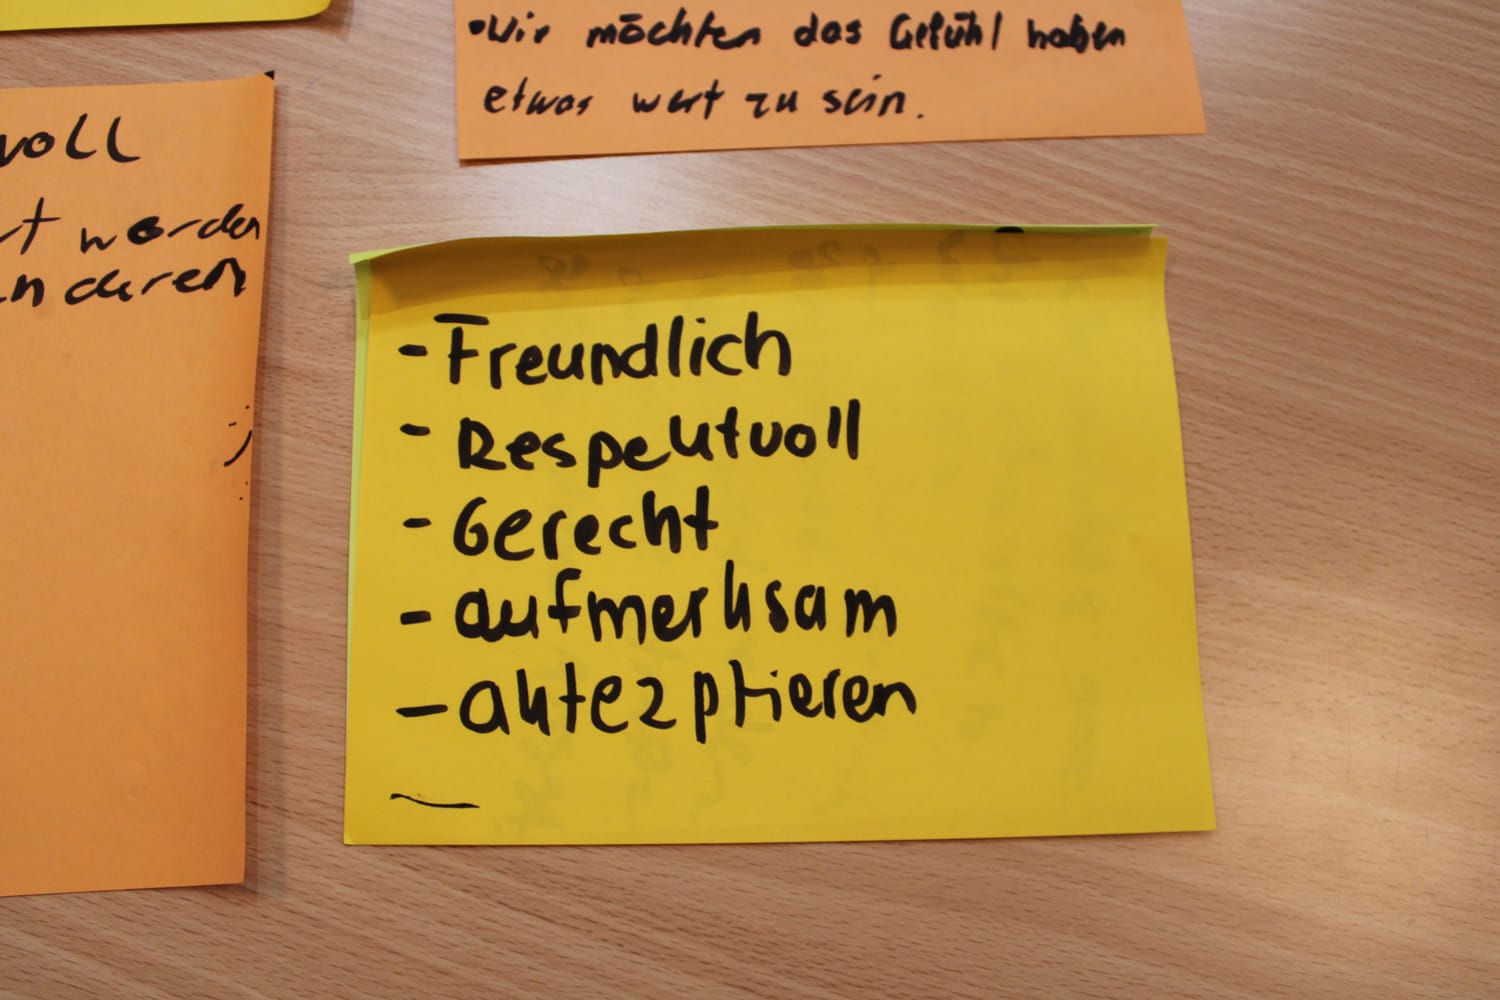 •Wir möchten das Gefühl haben
etwas wert zu sein.
voll
rt werden
anderen
- Freundlich
- Respektvoll
- Gerecht
- aufmerksam
- aktezptieren